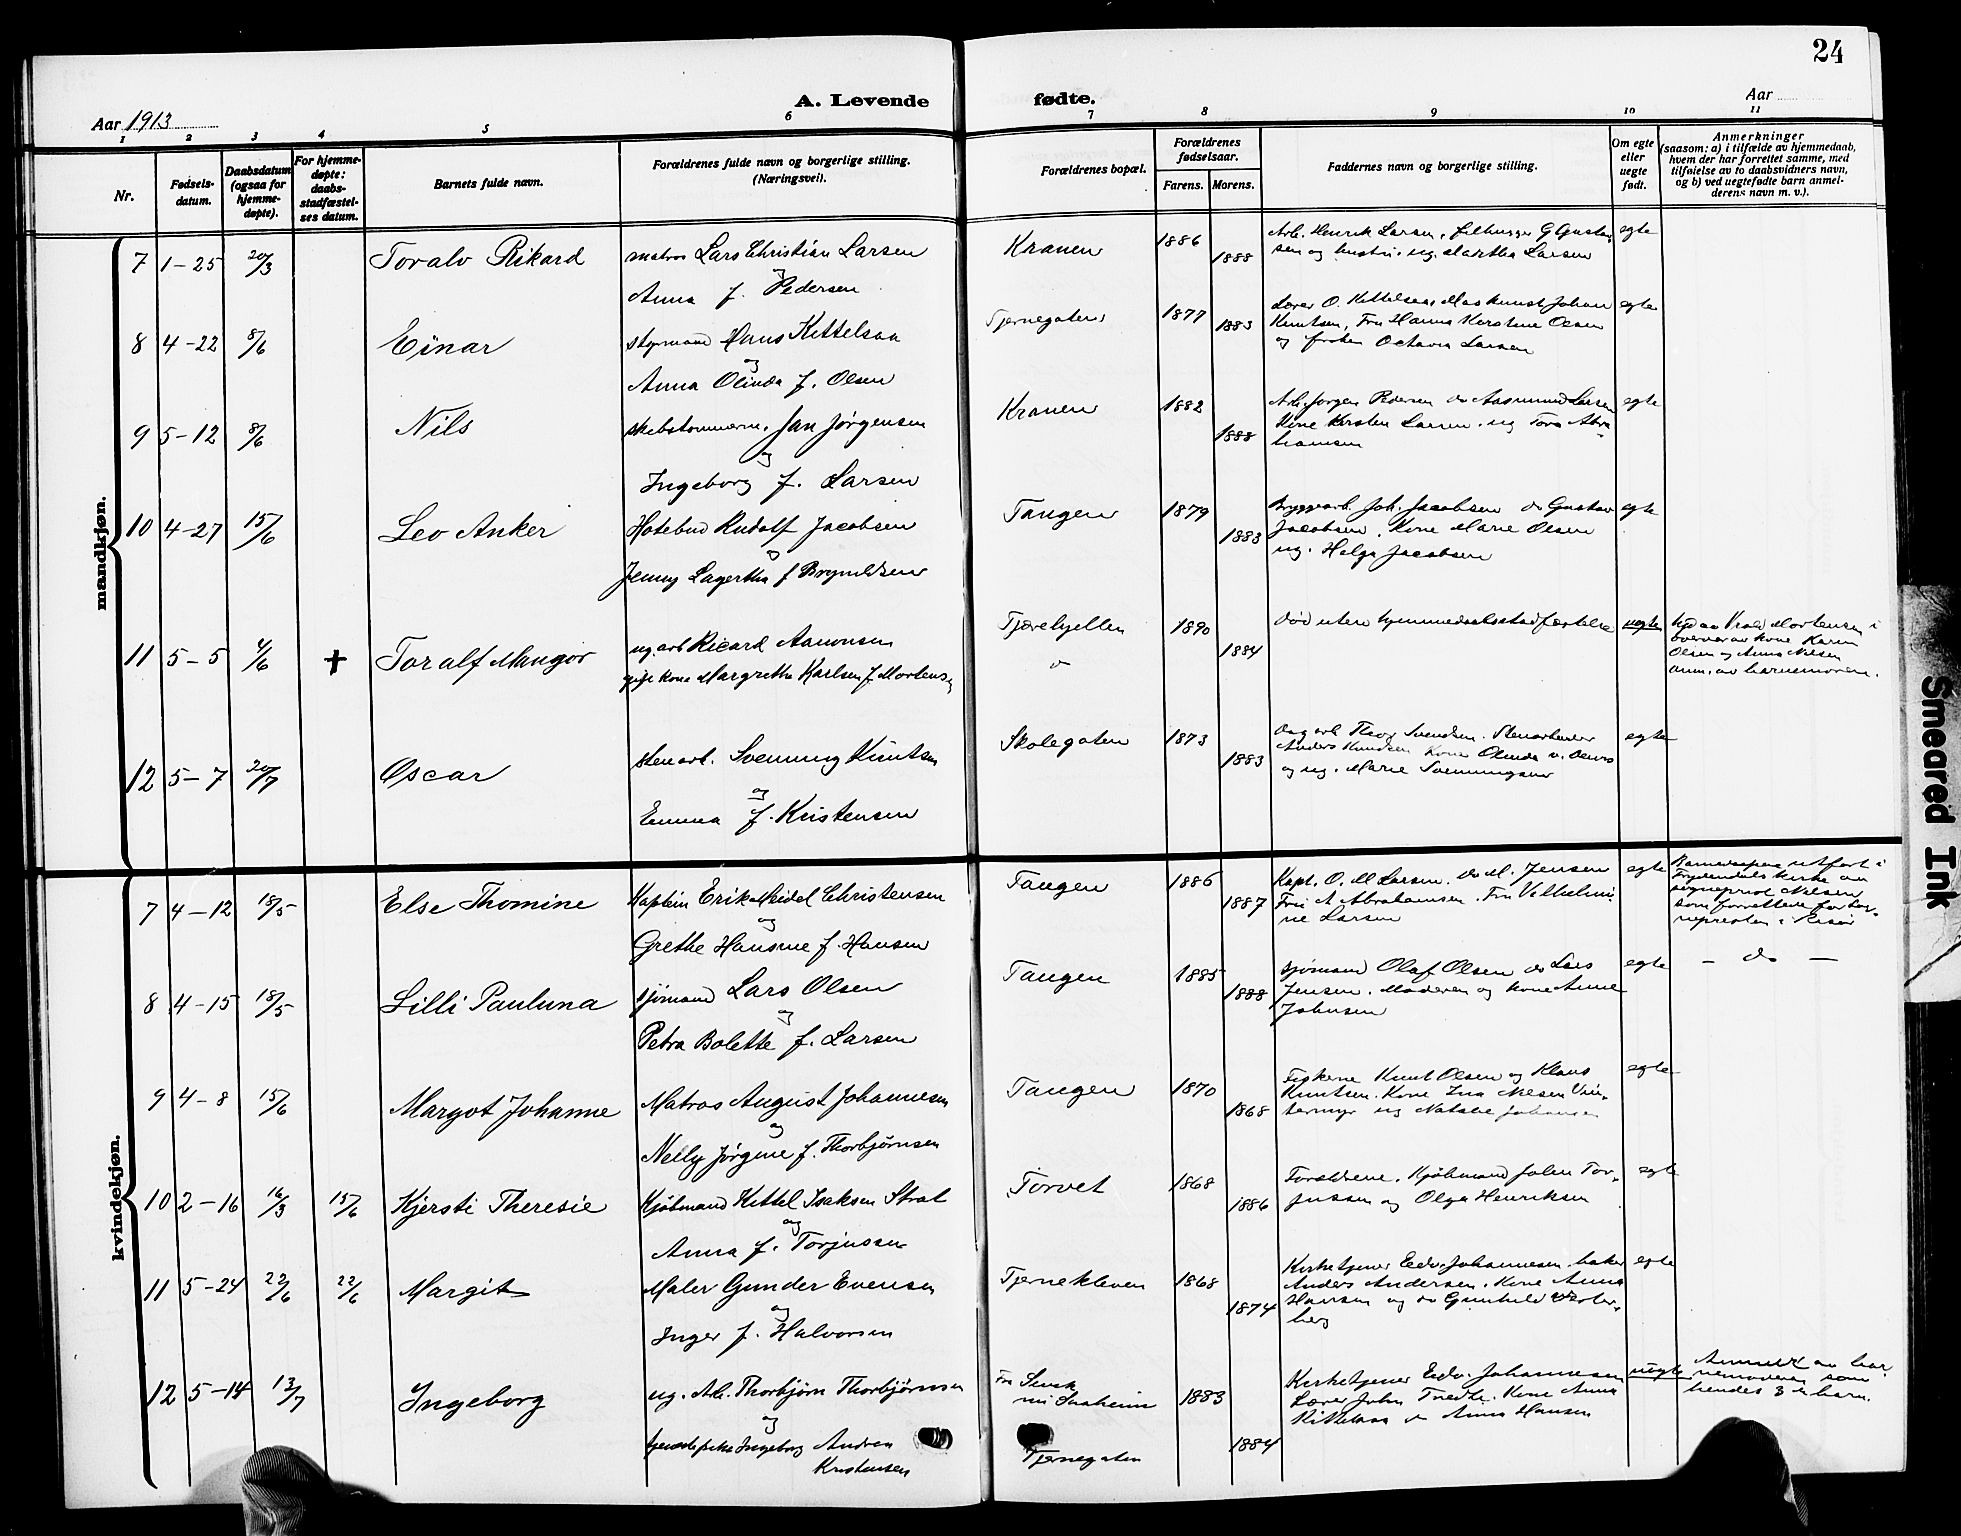 24
A. Levende fødte.
Aar 1913
Aar
1 2 3 4 5 6 7 8 9 10 11
Nr.
Fødsels-
datum.
Daabsdatum
(ogsaa for
hjemme-
døpte).
For hjemme-
døpte:
daabs-
stadfæstel-
ses datum.
Barnets fulde navn.
Forældrenes fulde navn og borgerlige stilling.
(Næringsvei).
Forældrenes bopæl.
Forældrenes
fødselsaar.
Farens. Morens.
Faddernes navn og borgerlige stilling.
Om egte
eller
uegte
født.
Anmerkninger
(saasom: a) i tilfælde av hjemmedaab,
hvem der har forrettet samme, med
tilføielse av to daabsvidners navn,
og b) ved uegtefødte barn anmel-
derens navn m. v.).
mandkjøn.
7 1-25 20/3 Toralv Rikard
matros Lars Christian Larsen
og
Anna f. Pedersen
Kranen 1886 1888
Arb. Henrik Larsen,
sen og hustru. ug. Martha Larsen
egte
8 4-22 8/6 Einar
styrmand Hans Kittelsaa
og
Anna Olinda f. Olsen
Tjernegaten 1877 1883
Lærer O. Kittelsaa, Maskinist Johan
Knutsen, Fru Hanna Kerstine Olsen
og frøken Octavia Larsen
egte
9 5-12 8/6 Nils
Jan Jørgensen
og
Ingeborg f. Larsen
Kranen 1882 1888
Arb. Jørgen Pedersen do Aasmund Larsen
Kone Kirsten Larsen. ug Tora Abra-
hamsen
egte
10 4-27 15/6 Leo Anker
Rudolf Jacobsen
og
Jenny Lagertha f Brynildsen
Tangen 1879 1883
Bryggearb. Joh. Jacobsen do Gustav
Jacobsen. Kone Marie Olsen
ug. Helga Jacobsen
egte
11 5-5 4/6 + Toralf Mangor
ug. arb Ricard Aanonsen
gift kone Margrethe Karlsen f. Mortensen
Tjærehjellen 1890 1884
Død uten hjemmedaabsstadfæstelse
uegte
Mortensen i
kone Karen
Olsen og Anna Nilsen
anm. av barnemoren.
12 5-7 20/7 Oscar
stenarb. Svenning Knutsen
og
Emma f. Kristensen
Skolegaten 1873 1883
Dagarb Theor Svendsen. Stenarbeider
Anders Knudsen Kone Olinda
og ug. Marie Svenningsen
egte
kvindekjøn.
7 4-12 18/5 Else Thomine
Kaptein Erik Meidel Christensen
og
Grethe Hansine f. Hansen
Tangen 1886 1887
Kapt. O. M Larsen. do M. Jensen
Fru A Abrahamsen. Fru Vilhelmi-
ne Larsen
egte
utført i
Frydendals kirke av
sogneprest Nielsen
som forrettede for sog-
nepresten i Risør
8 4-15 18/5 Lilli Pauluna
sjømand Lars Olsen
og
Petra Bolette f. Larsen
Tangen 1885 1888
sjømand Olaf Olsen do Lars
Jensen. Moderen og kone Anne
Johnsen
egte
- do -
9 4-8 15/6 Margot Johanne
Matros August Johannesen
og
Nelly Jørgine f. Thorbjørnsen
Tangen 1870 1868
Fiskerne Knut Olsen og Klaus
Knutsen. Kone Ina Nilsen Vin-
termyr ug Natalie Johansen
egte
10 2-16 16/3 15/6 Kjersti Theresie
Kjøbmand Kittel Isaksen Strat
og
Anna f. Torjussen
Torvet 1868 1886
Forældrene. Kjøbmand John Tor-
jussen og Olga Henriksen
egte
11 5-24 22/6 22/6 Margit
Maler Gunder Evensen
og
Inger f. Halvorsen
Tjernekleven 1868 1874
Kirketjener Edv. Johannesen baker
Anders Andersen. Kone Anna
Hansen og do Gunhild
berg
egte
12 5-14 13/7 Ingeborg
ug. Arb. Thorbjørn Thorbjørnsen
og
tjenestepike Ingeborg Andrea
Kristensen
Saaheim
Tjernegaten
1883 1884
Kirketjener Edv. Johannesen
Lærer John Tvedt. Kone Anna
Kittelsaa do Anna Hansen
uegte
Anmeldt av bar-
nemoderen som
hendes 3die barn.
Smeared Ink